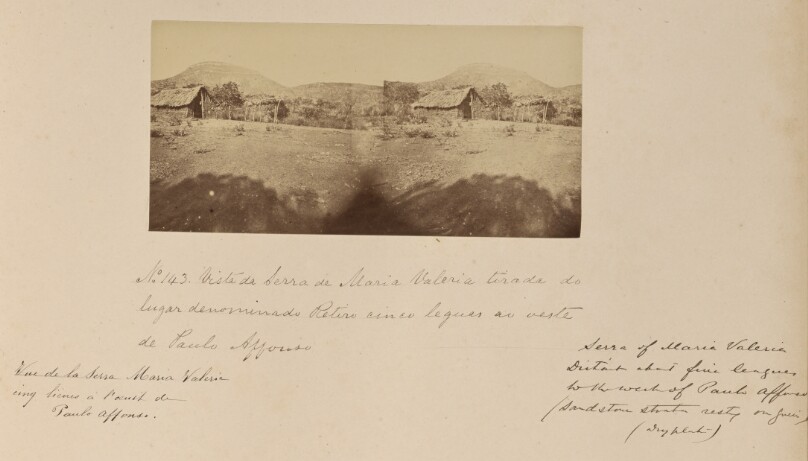 Nº 143. Vista da Serra de Maria Valeria tirada do
lugar denominado Retiro cinco leguas ao oeste
de Paulo Affonso
Vue de la Serra Maria Valeria
cinq lieues a l'ouest de
Paulo Affonso.
Serra of Maria Valeria
Distant about five leagues
to the west of Paulo Affonso
(Sandstone strata resting on gneiss)
(dry plate)